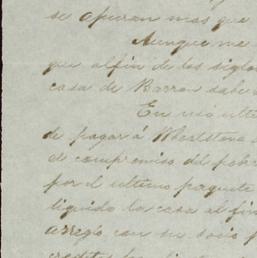 se apuran mas que
Aunque me
que al fin de los siglos
casa de Barron sabe
En mio ultimo
de pagar á Wheelstone
el compromiso del pobre
por el ultimo paquete
liquido la casa al fin
arreglo con su socio p
creditos